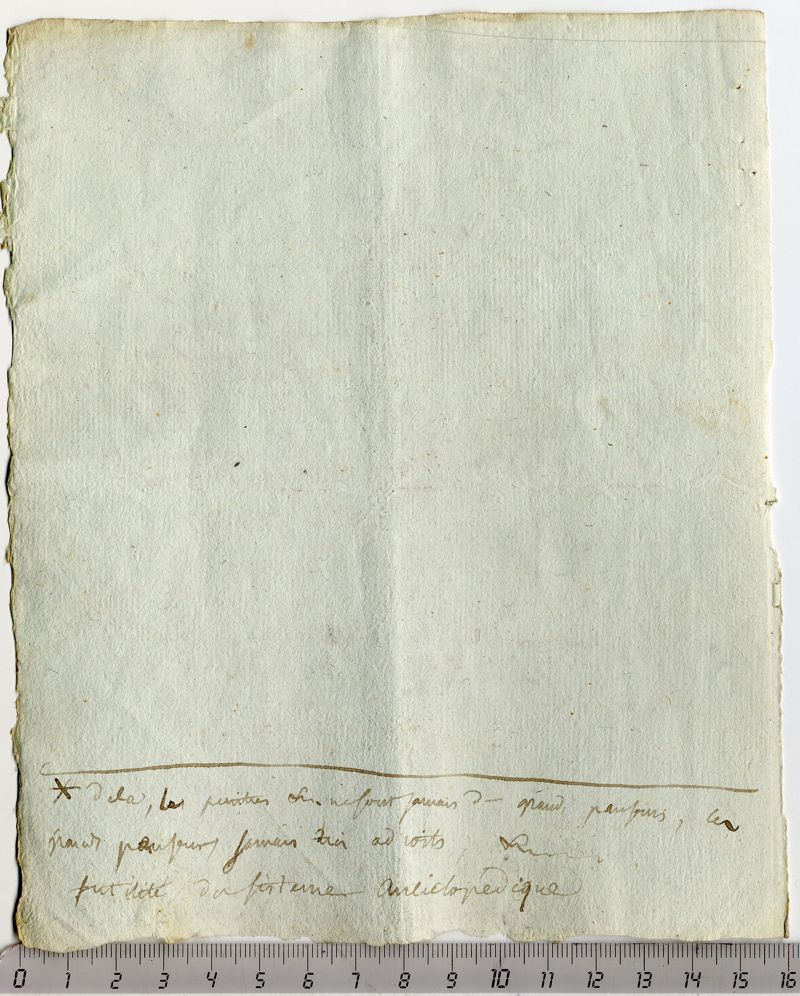 * dela, les peintres &c. ne sont jamais de grands panseurs, les
grands panseurs jamais très adroits, &c.
futilité du sisteme anciclopedique
0 1 2 3 4 5 6 7 8 9 10 11 12 13 14 15 16